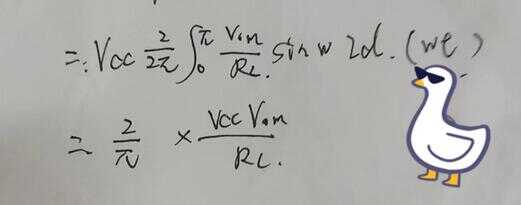 =. Vcc 2/2π ∫₀^π Vom/RL. sin w 2d. (wt)
= 2/π × Vcc Vom/RL.